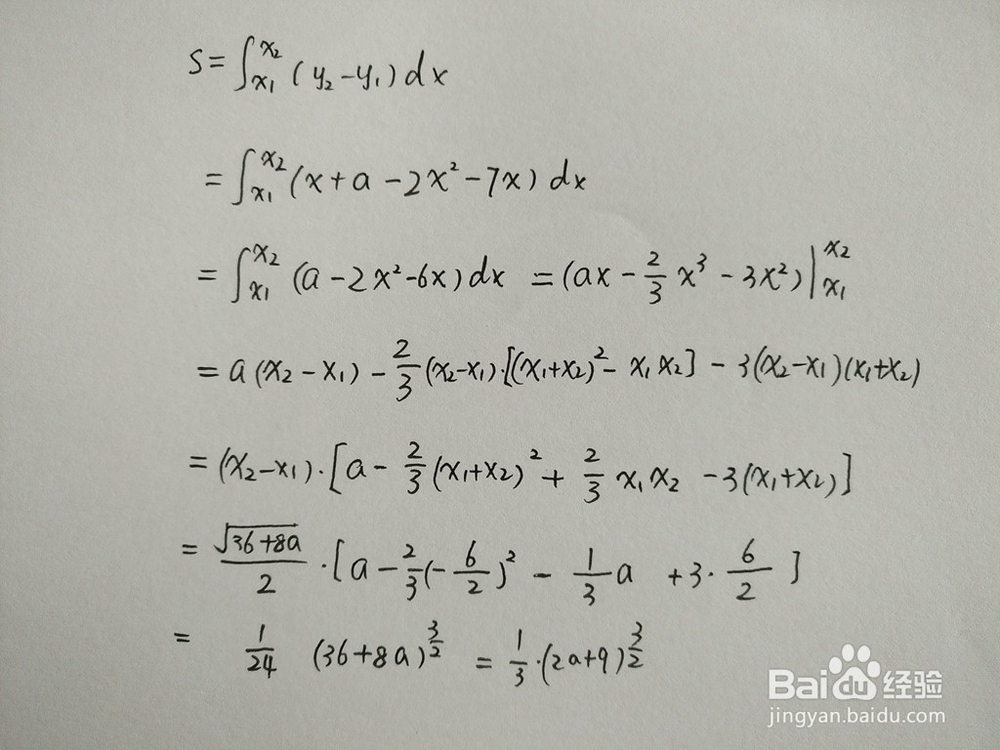 S=∫_{x₁}^{x₂}(y₂-y₁)dx
=∫_{x₁}^{x₂}(x+a-2x²-7x)dx
=∫_{x₁}^{x₂}(a-2x²-6x)dx =(ax-\frac{2}{3}x³-3x²)|_{x₁}^{x₂}
=a(x₂-x₁)-\frac{2}{3}(x₂-x₁)·[(x₁+x₂)²-x₁x₂]-3(x₂-x₁)(x₁+x₂)
=(x₂-x₁)·[a-\frac{2}{3}(x₁+x₂)²+\frac{2}{3}x₁x₂-3(x₁+x₂)]
=\frac{\sqrt{36+8a}}{2}·[a-\frac{2}{3}(-\frac{6}{2})²-\frac{1}{3}a+3·\frac{6}{2}]
=\frac{1}{24}(36+8a)^{\frac{3}{2}}=\frac{1}{3}·(2a+9)^{\frac{3}{2}}
Baidu 经验
jingyan.baidu.com